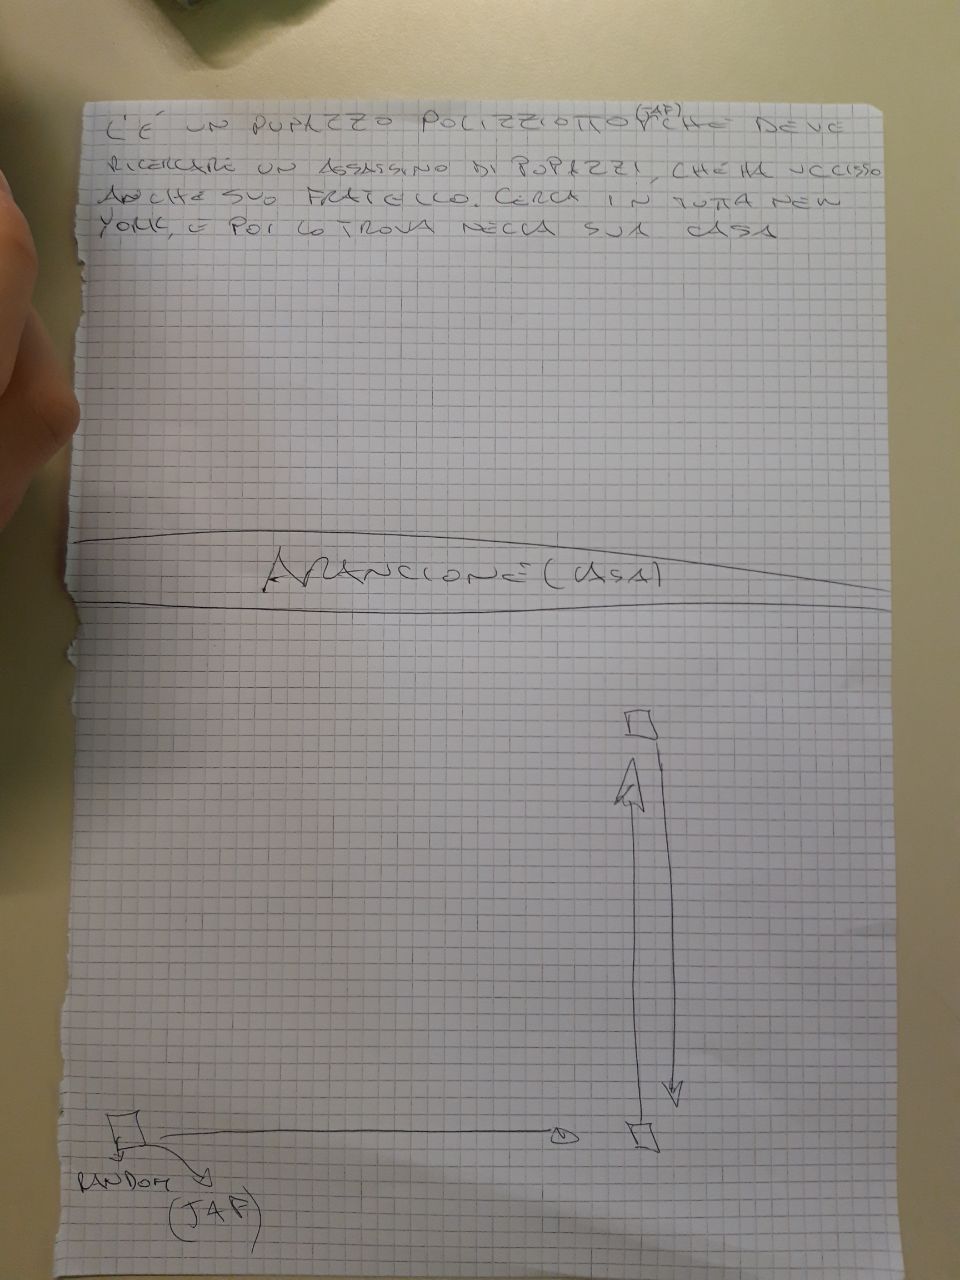 C'È UN PUPAZZO POLIZZIOTTO (JAF) CHE DEVE
RICERCARE UN ASSASSINO DI PUPAZZI, CHE HA UCCISSO
ANCHE SUO FRATELLO. CERCA IN TUTTA NEW
YORK, E POI LO TROVA NELLA SUA CASA
ARANCIONE (CASA)
RANDOM
(JAF)